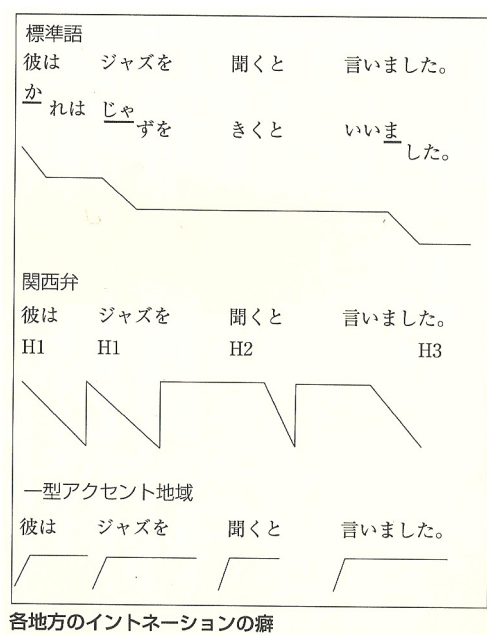 標準語
彼は ジャズを 聞くと 言いました。
かれは じゃずを きくと いいました。
関西弁
彼は ジャズを 聞くと 言いました。
H1 H1 H2 H3
一型アクセント地域
彼は ジャズを 聞くと 言いました。
各地方のイントネーションの癖